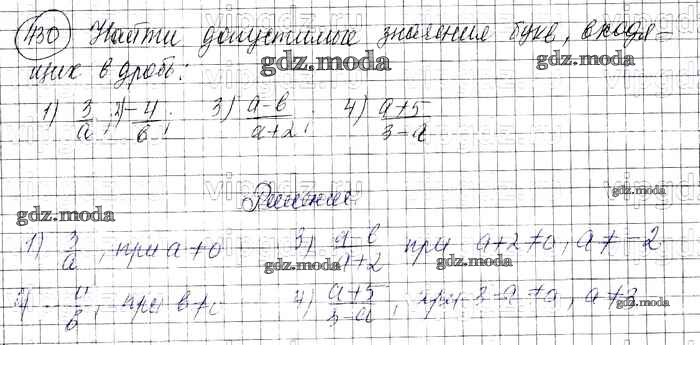 430 Найти допустимые значения букв, входя-
щих в дробь:
gdz.moda gdz.moda
1) 3/a; 2) -4/b; 3) a-b/a+2; 4) a+5/3-a
vipgdz.ru
Решение
gdz.moda
gdz.moda
1) 3/a, при a≠0 3) a-b/a+2 при a+2≠0, a≠-2
gdz.moda gdz.moda
2) -4/b, при b≠0 4) a+5/3-a, при 3-a≠0, a≠3
gdz.moda